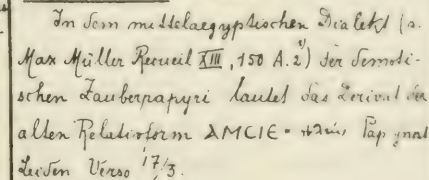 In dem mittelaegyptischen Dialekt (s.
Max Müller Recueil XIII, 150 A. 2) der demoti-
schen Zauberpapyri lautet das Derivat der
alten Relativform ⲀⲘⲤⲒⲈ Pap gnost
Leiden Verso 17/3.